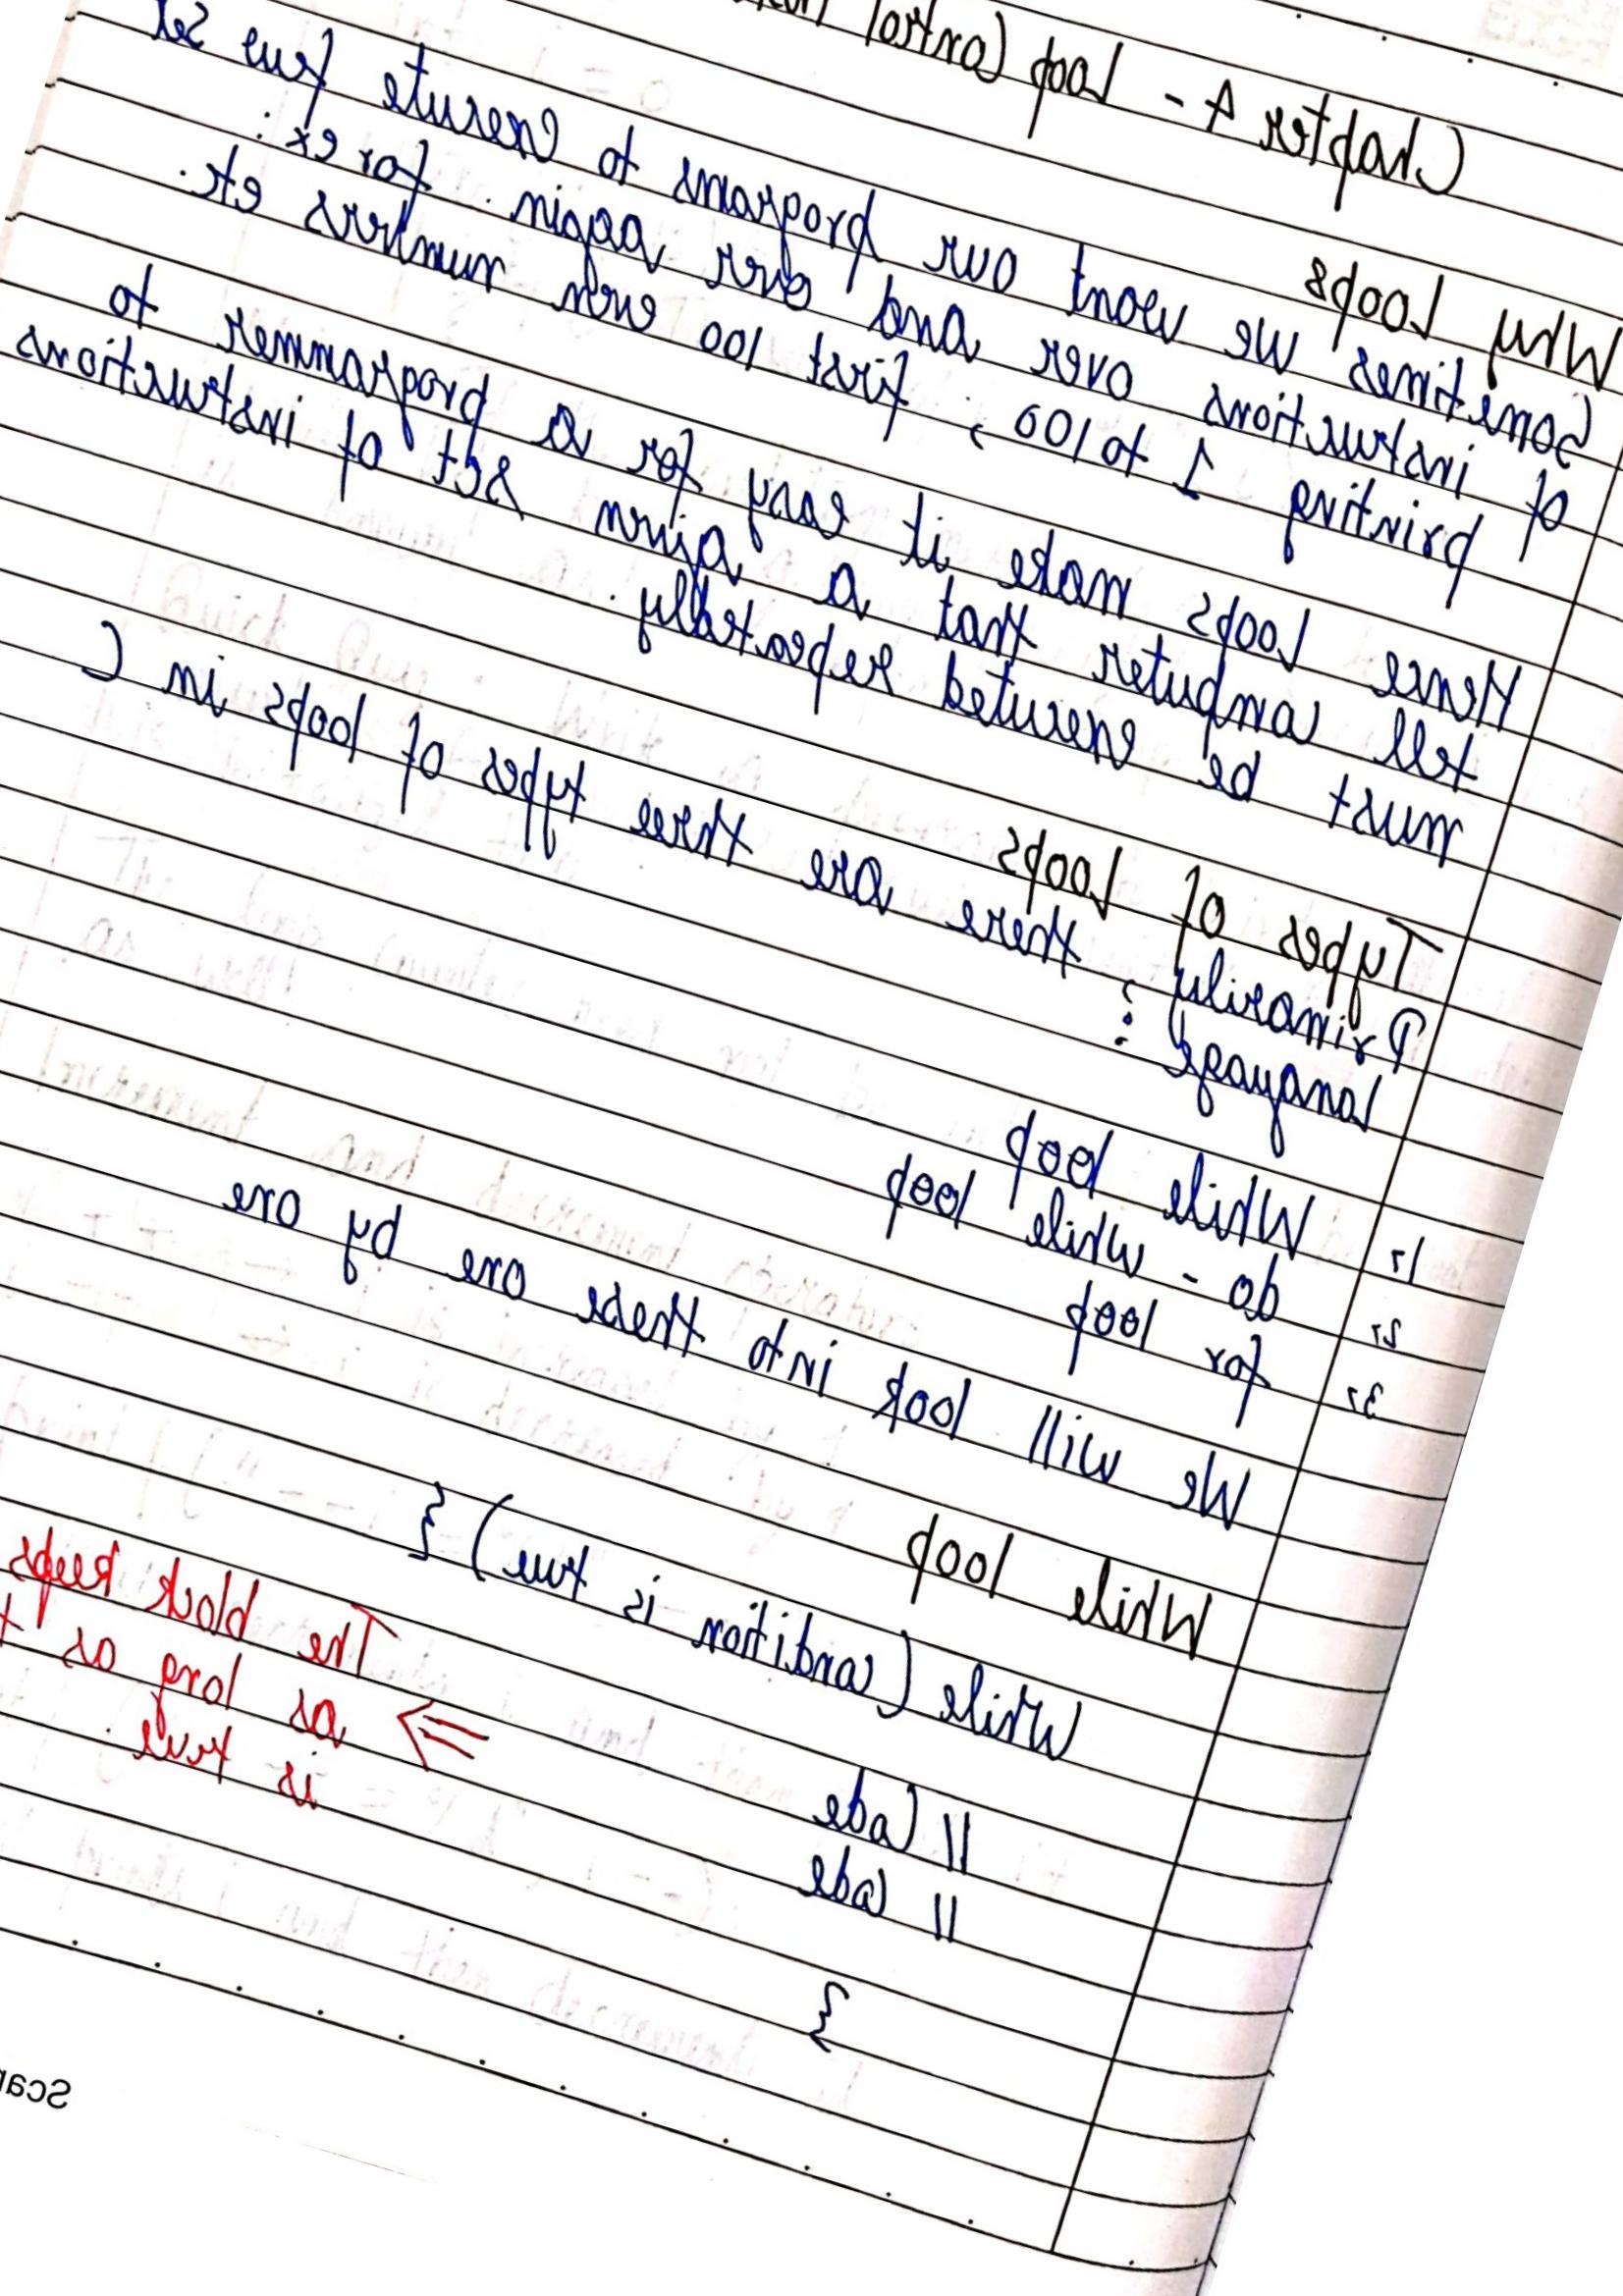 Chapter 4 - Loop Control
Why Loops
Sometimes we want our programs to execute few set
of instructions over and over again. for ex:
printing 1 to 100, first 100 even numbers etc.
Hence Loops make it easy for a programmer to
tell computer that a given set of instructions
must be executed repeatedly.
Types of Loops
Primarily, there are three types of loops in C
Language:
1, While loop
2, do - while loop
3, for loop
We will look into these one by one
While loop
While (condition is true) {
// Code
// Code
}
⇒ The block keeps
as long as
is true.